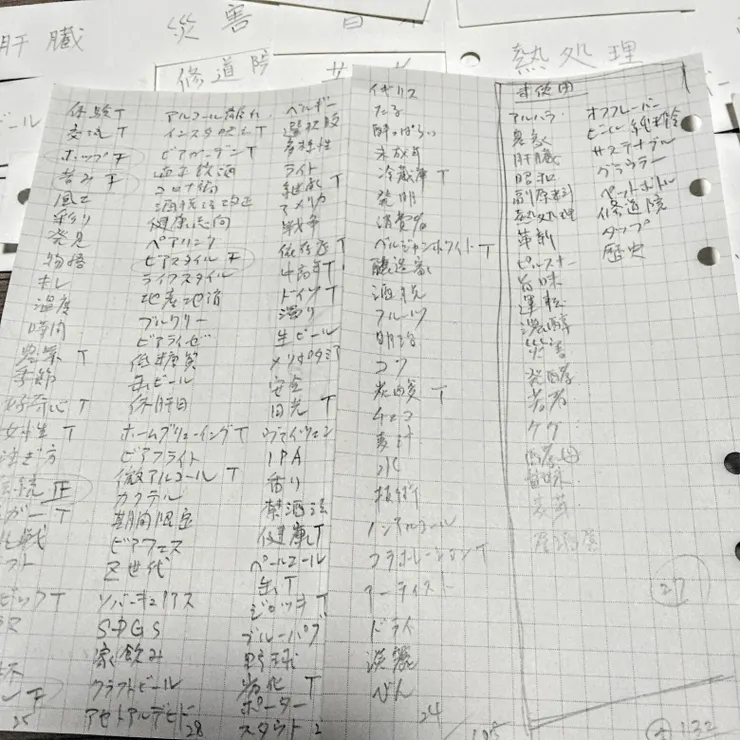 肝臓
災害
修道院
熱処理
体験 T
交流 T
ホップ 下
苦み 下
風土
彩り
発見
物語
キレ
温度
時間
農業 T
季節
好奇心 T
女性 T
注ぎ方
伝統 正
アルコール離れ
インスタ映え T
ビアガーデン T
コロナ禍
酒税法改正
健康志向
ペアリング
ビアスタイル 下
ライフスタイル
地産地消
ブルワリー
ビアライゼ
低糖質
缶ビール
休肝日
ホームブリューイング T
ビアフライト
微アルコール T
カクテル
期間限定
ビアフェス
Z世代
ソバーキュリアス
SDGs
家飲み
クラフトビール
アセトアルデヒド
28
ベルギー
選択肢
多様性
ライト
継承 T
アメリカ
戦争
依存症 T
中高年 T
ドイツ T
濁り
生ビール
メソポタミア
安全
日光 T
ヴァイツェン
IPA
香り
禁酒法
健康 T
ペールエール
缶 T
ジョッキ T
ブルーパブ
野球
劣化 T
ポーター
スタウト
イギリス
たる
酔っぱらい
未成年
冷蔵庫 T
発明
消費者
ベルジャンホワイト T
醸造家
酒税
フルーツ
明治
コク
炭酸 T
チェコ
麦汁
水
ノンアルコール
コラボレーション T
アーティスト
ドライ
淡麗
びん
24
未使用
アルハラ
農家
肝臓
昭和
副原料
熱処理
革新
ピルスナー
旨味
運転
濃醇
災害
発酵
若者
ケグ
酵母
麦芽
オフフレーバー
ビール純粋令
サステナブル
グラウラー
ペットボトル
修道院
タップ
歴史
27
25
132